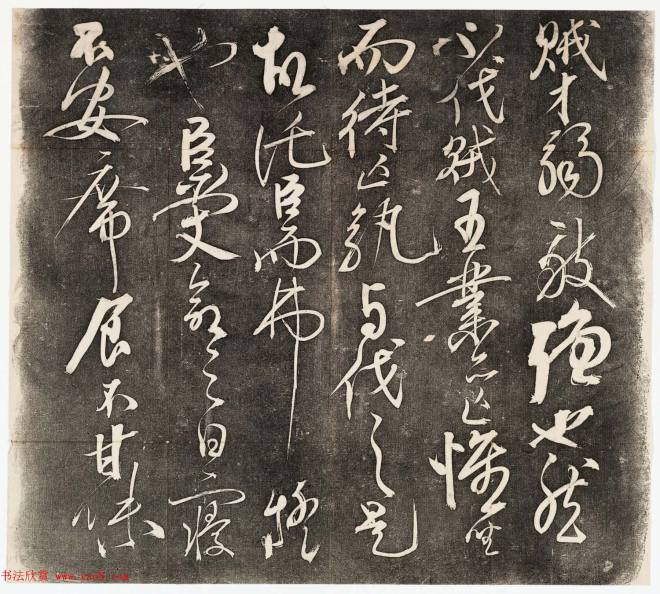 賊才弱敵強也然
不伐賊王業亦亡惟坐
而待亡孰与伐之是
故託臣而弗疑
也臣受命之日寢
不安席食不甘味
书法欣赏 www.yac8.com